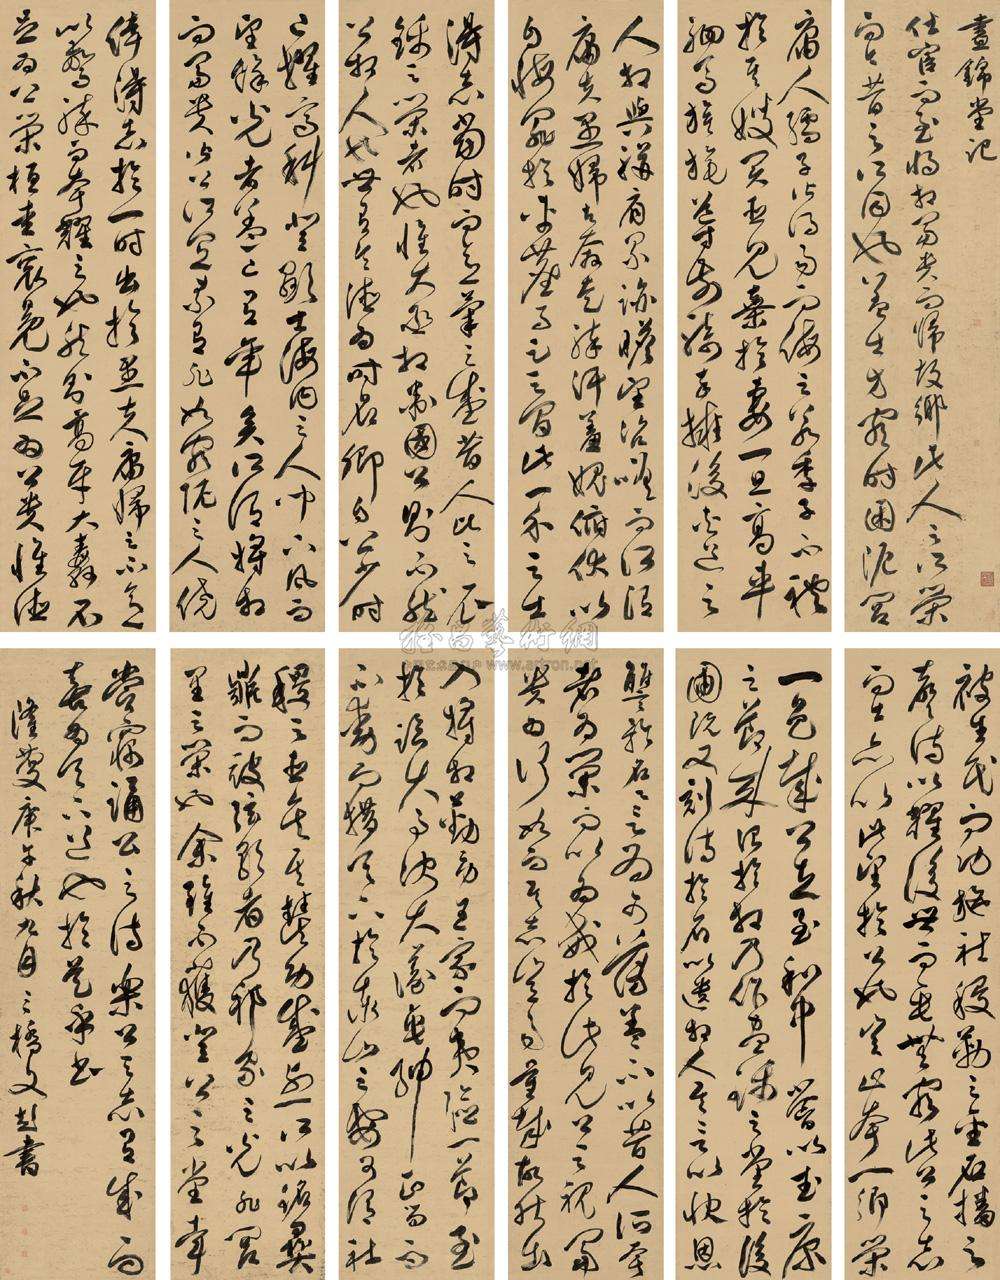 晝錦堂記
仕宦而至將相富貴而歸故鄉此人之所榮
而今昔之所同也蓋士方窮時困阨閭
庸人孺子皆得易而侮之若季子不禮
於其嫂買臣見棄於妻一旦高車
駟馬旗旄導前騎卒擁後夾道之
人相與駢肩累迹瞻望咨嗟而所謂
庸夫愚婦者奔走駭汗羞愧俯伏以
自悔罪於車塵馬足之間此一介之士
得志當時而意氣之盛昔人比之衣
錦之榮者也惟大丞相衛國公則不然
公相人也世有令德為時名卿自公少時
已擢高科登顯士海內之人聞下風而
望餘光者蓋亦有年矣所謂將相
而富貴皆公所宜素有非如窮阨之人僥
倖得志於一時出於愚夫庸婦之不意
以驚駭而夸耀之也然則高牙大纛不
足為公榮桓圭衮冕不足為公貴惟德
被生民而功施社稷勒之金石播之
聲詩以耀後世而垂無窮此公之志
而士亦以此望於公也豈止夸一鄉榮
一邑哉公在至和中嘗以武康
之節來治於相乃作晝錦之堂於後
圃既又刻詩於石以遺相人其言以快恩
讎矜名譽為可薄蓋不以昔人所夸
者為榮而以為戒於此見公之視富
貴為何如而其志豈易量哉故能出
入將相勤勞王家而夷險一節至
於臨大事決大議垂紳正笏而
不動而措天下於泰山之安可謂社
稷之臣矣其豐功盛烈所以銘彝
鼎而被弦歌者乃邦家之光非閭
里之榮也余雖不獲登公之堂幸
嘗竊誦公之詩樂公之志有成而
喜為天下道也於是乎書
隆慶庚午秋九月三橋文彭書
雅昌藝術網
www.artron.net